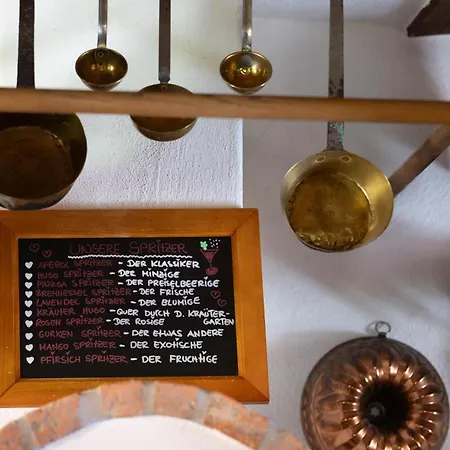 UNSERE SPRITZER
APEROL SPRITZER - DER KLASSIKER
HUGO SPRITZER - DER MINZIGE
PRIGGA SPRITZER - DER PREISELBEERIGE
BRENNESSEL SPRITZER - DER FRISCHE
LAVENDEL SPRITZER - DER BLUMIGE
KRÄUTER HUGO - QUER DURCH D. KRÄUTER-
GARTEN
ROSEN SPRITZER - DER ROSIGE
GURKEN SPRITZER - DER ETWAS ANDERE
MANGO SPRITZER - DER EXOTISCHE
PFIRSICH SPRITZER - DER FRUCHTIGE